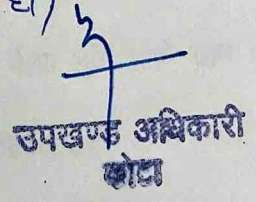 उपखण्ड अधिकारी
कोटा